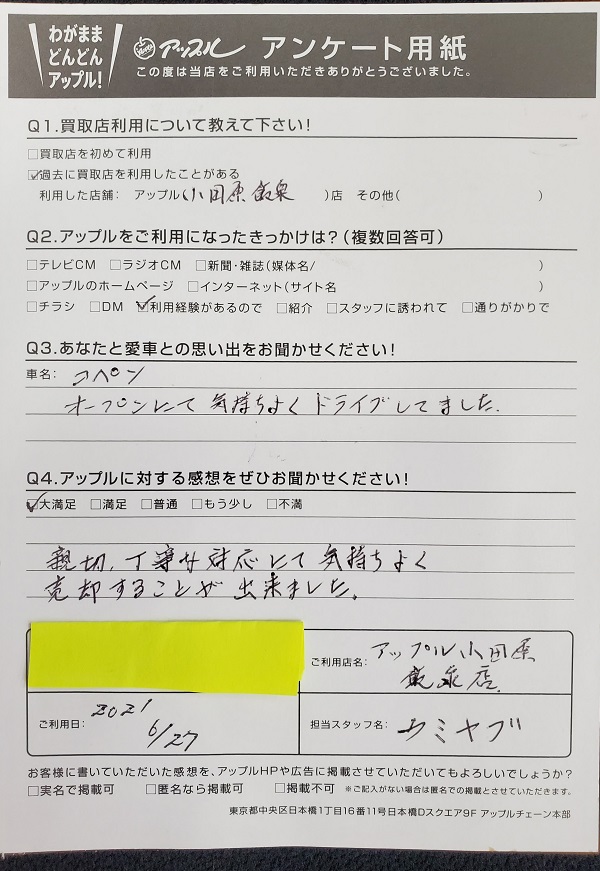 わがまま
どんどん
アップル!
アップル アンケート用紙
この度は当店をご利用いただきありがとうございました。
Q1.買取店利用について教えて下さい!
□買取店を初めて利用
☑過去に買取店を利用したことがある
利用した店舗: アップル(小田原飯泉 )店 その他( )
Q2.アップルをご利用になったきっかけは?(複数回答可)
□テレビCM □ラジオCM □新聞・雑誌(媒体名/ )
□アップルのホームページ □インターネット(サイト名 )
□チラシ □DM ☑利用経験があるので □紹介 □スタッフに誘われて □通りがかりで
Q3.あなたと愛車との思い出をお聞かせください!
車名: コペン
オープンにて気持ちよくドライブしてました.
Q4.アップルに対する感想をぜひお聞かせください!
☑大満足 □満足 □普通 □もう少し □不満
親切、丁寧な対応にて気持ちよく
売却することが出来ました。
ご利用店名: アップル小田原
飯泉店
ご利用日: 2021
6/27
担当スタッフ名: ウミヤブ
お客様に書いていただいた感想を、アップルHPや広告に掲載させていただいてもよろしいでしょうか?
□実名で掲載可 □匿名なら掲載可 □掲載不可 ※ご記入がない場合は匿名での掲載とさせていただきます。
東京都中央区日本橋1丁目16番11号日本橋Dスクエア9F アップルチェーン本部